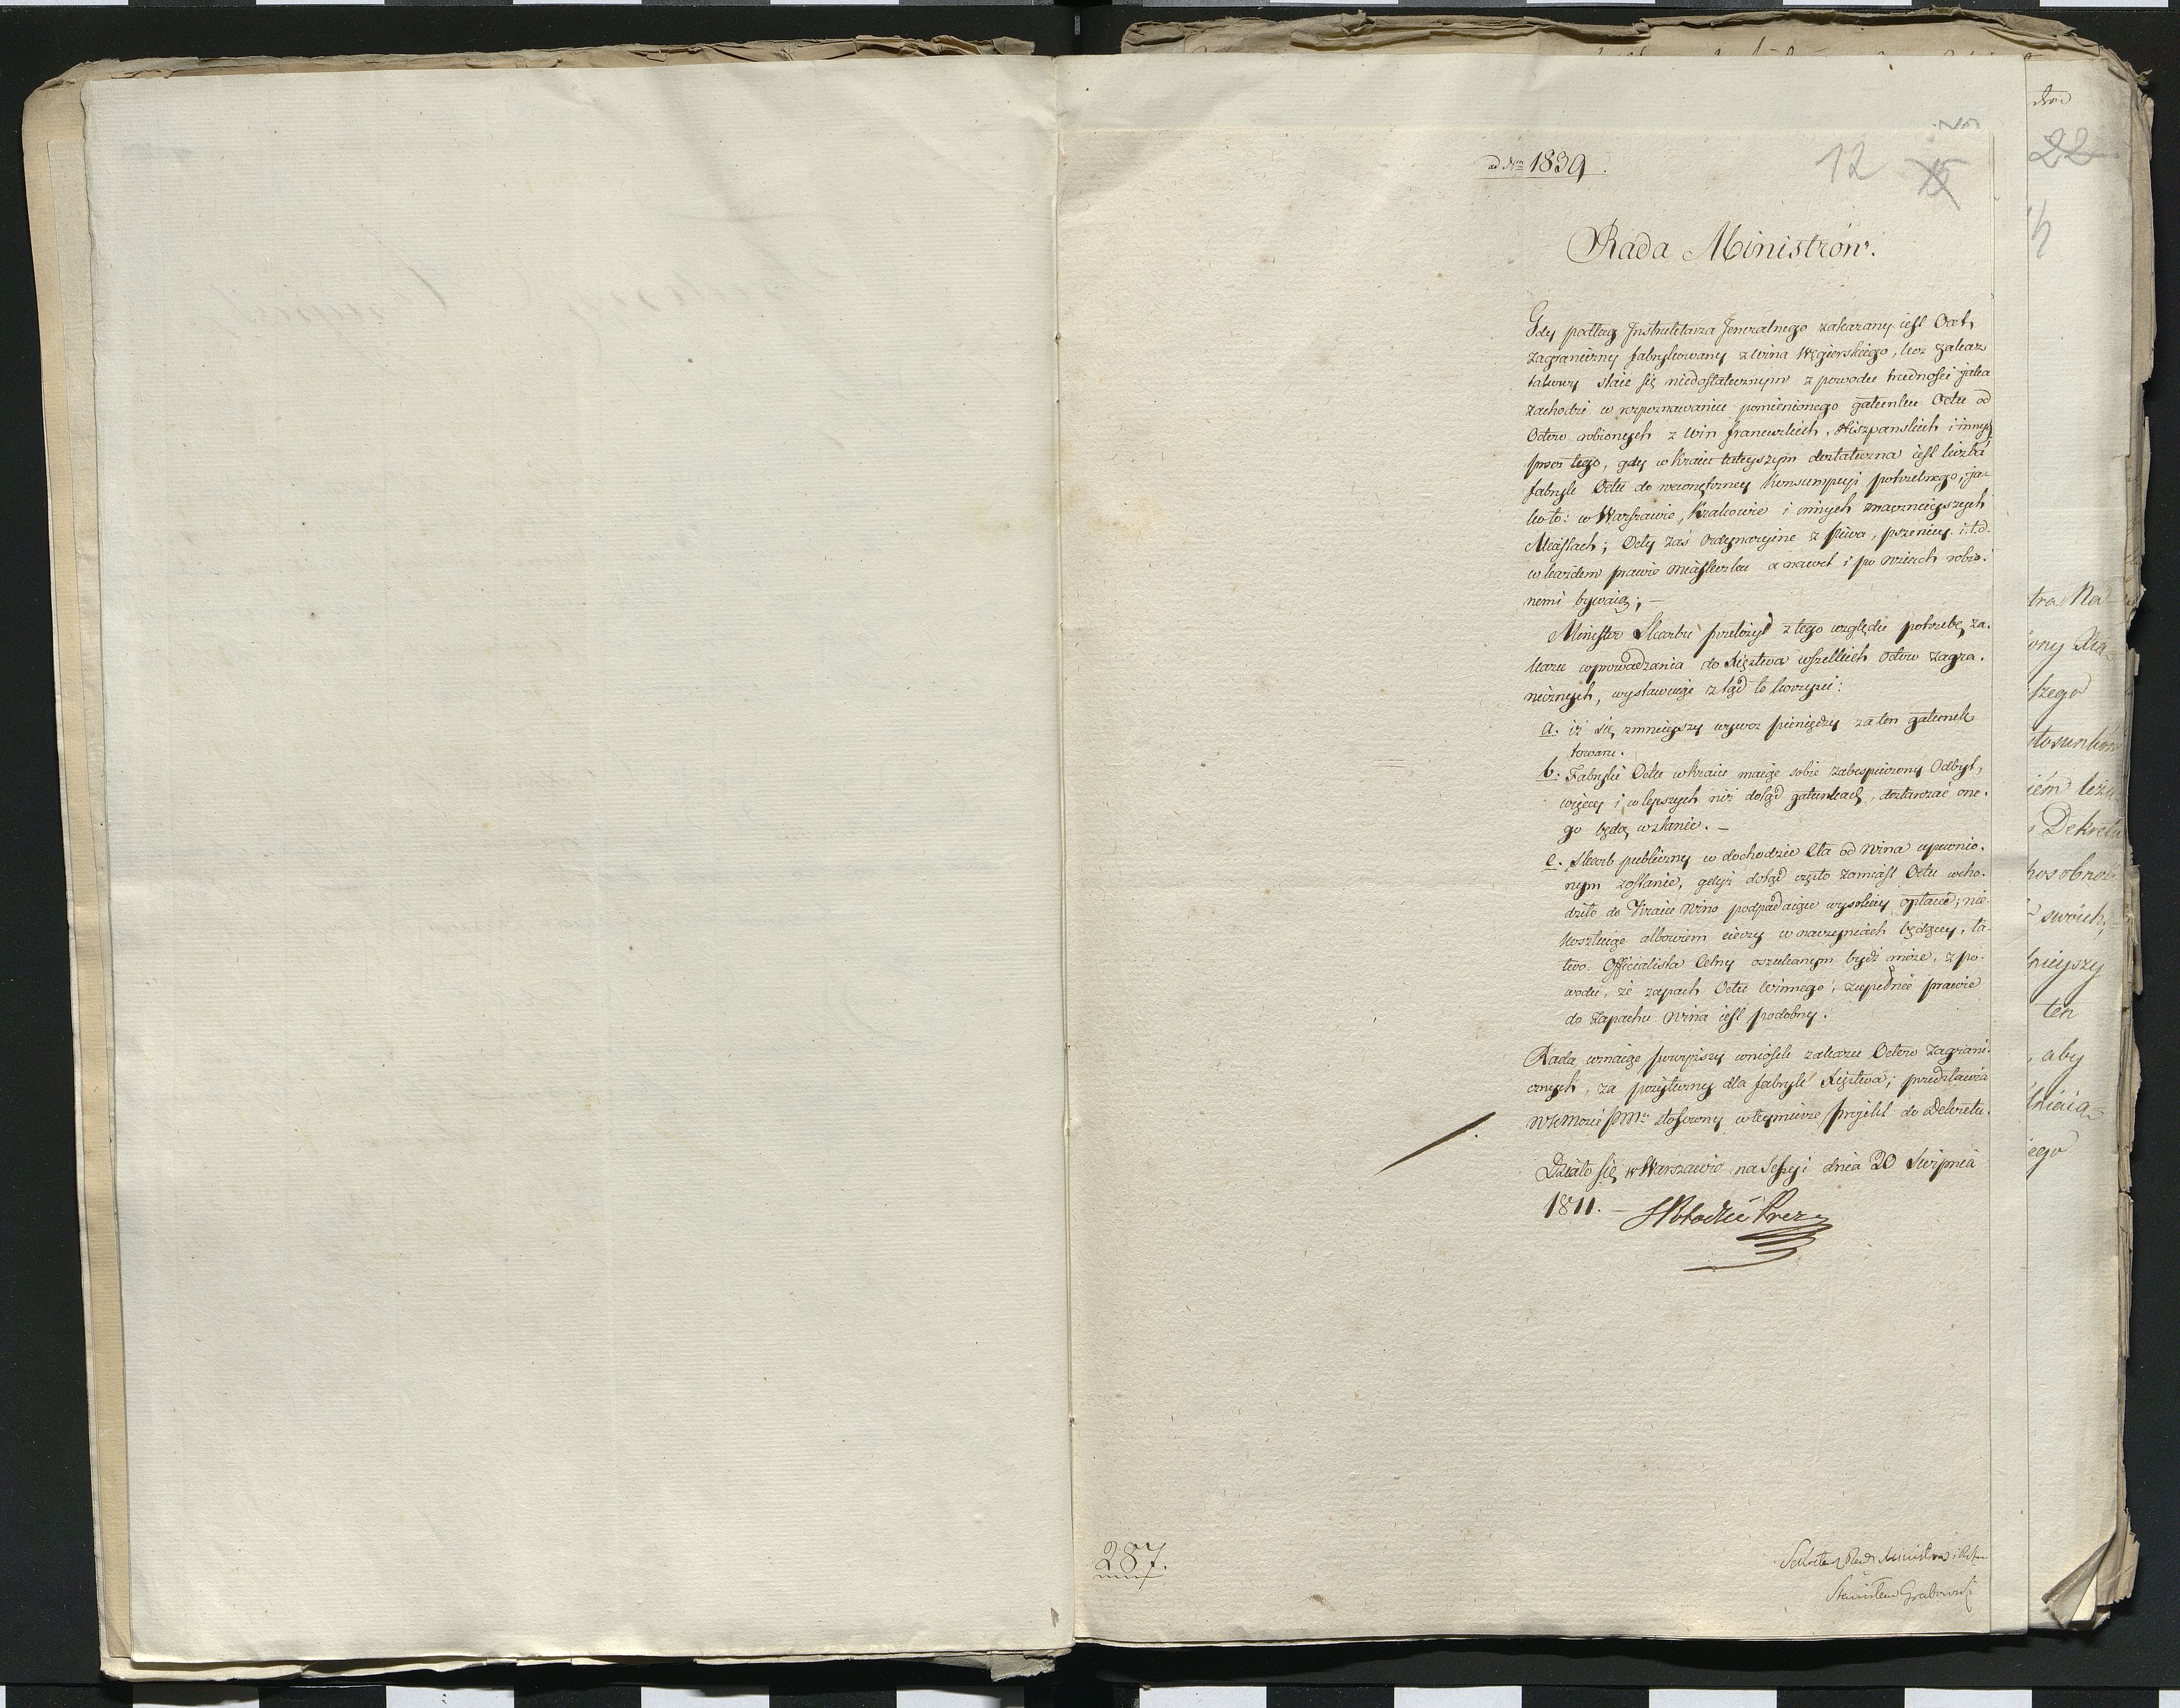 ad Nrm 1839.
12 15
Rada Ministrów.
Gdy podług Instruktarza Jeneralnego zakazany iest Ocet
zagraniczny fabrykowany z wina Węgierskiego, lecz zakaz
takowy staie się niedostatecznym z powodu trudności jaka
zachodzi w rozpoznawaniu pomienionego gatunku Octu od
Octow robionych z win francuzkich, Hiszpanskich i innych
procz tego, gdy w Kraiu tuteyszym dostateczna iest liczba
fabryk Octu do wewnętrzney Konsumpcyi potrzebnego, ja-
ko to: w Warszawie, Krakowie i innych znacznieyszych
Miastach; Octy zaś ordynaryine z piwa, pszenicy i.t.d.
w każdem prawie Miasteczku a nawet i po wsiach robio-
nemi bywaią; —
Minister Skarbu przełożył z tego względu potrzebę za-
kazu wprowadzania do Xięztwa wszelkich Octow zagra-
nicznych, wystawuiąc ztąd te korzyści:
a. iż się zmnieyszy wywoz pieniędzy za ten gatunek
towaru.
b. Fabryki Octu w Kraiu maiąc sobie zabespieczony Odbyt,
więcey i w lepszych niż dotąd gatunkach, dostarczać one-
go będą w stanie. —
c. Skarb publiczny w dochodzie Cła od Wina upewnio-
nym zostanie, gdyż dotąd często zamiast Octu wcho-
dziło do Kraiu Wino podpadaiące wysokiey opłacie; nie-
kosztuiąc albowiem cieczy w naczyniach będącey, ła-
two Officialista Celny oszukanym bydź może, z po-
wodu, że zapach Octu Winnego, zupełnie prawie
do zapachu Wina iest podobny.
Rada uznaiąc powyższy wniosek zakazu Octow zagrani-
cznych, za pożyteczny dla fabryk Xięztwa; przedstawia
W.K.Mości P.M. stosowny w tey mierze projekt do Dekretu.
Działo się w Warszawie na Sessyi dnia 20 Sierpnia
1811. —
Prez
287.
Sekretarz Rady Ministrow
Stanisław Grabowski
22
tra Na-
szego
stosunków
Dekretu
swoich,
nieyszy
ten
, aby
iego